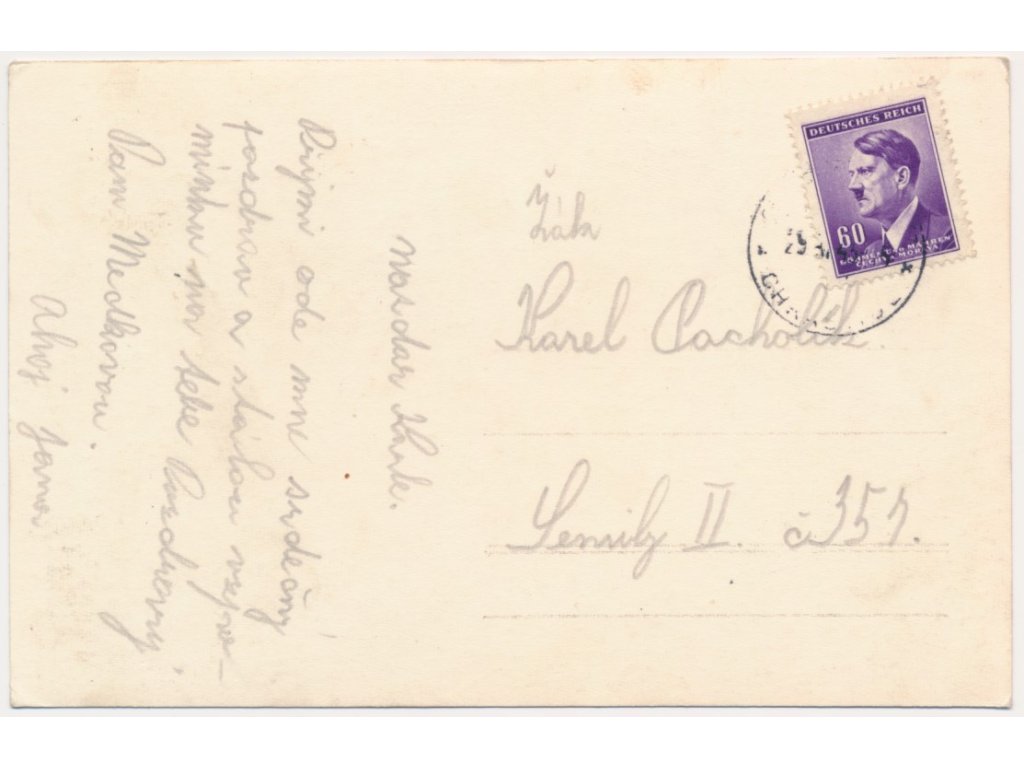 Nazdar Karle.
Přijmi ode mne srdečný
pozdrav a stálou vzpo-
mínku na tebe Pozdravuj
Paní Medkovou.
Ahoj Jana.
DEUTSCHES REICH
60
BÖHMEN UND MÄHREN
ČECHY A MORAVA
29
Žák
Karel Pacholík.
Semily II. č 357.